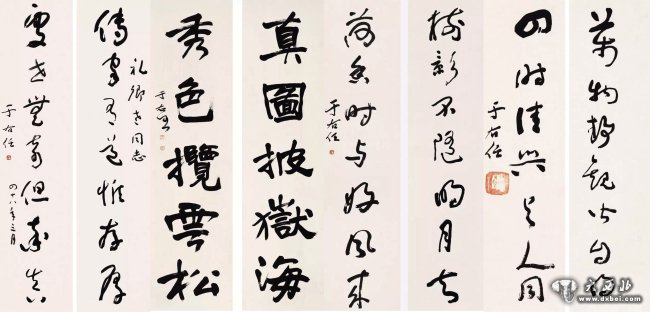 萬物靜觀皆自得
四时佳興与人同
于右任
樹影不隨明月去
荷香时与好風来
于右任
真圖披嶽海
秀色攬雲松
于右任
礼卿老同志
傳家有道惟存厚
處世無奇但率真
四十八年三月
于右任
大西北
www.dxbei.com